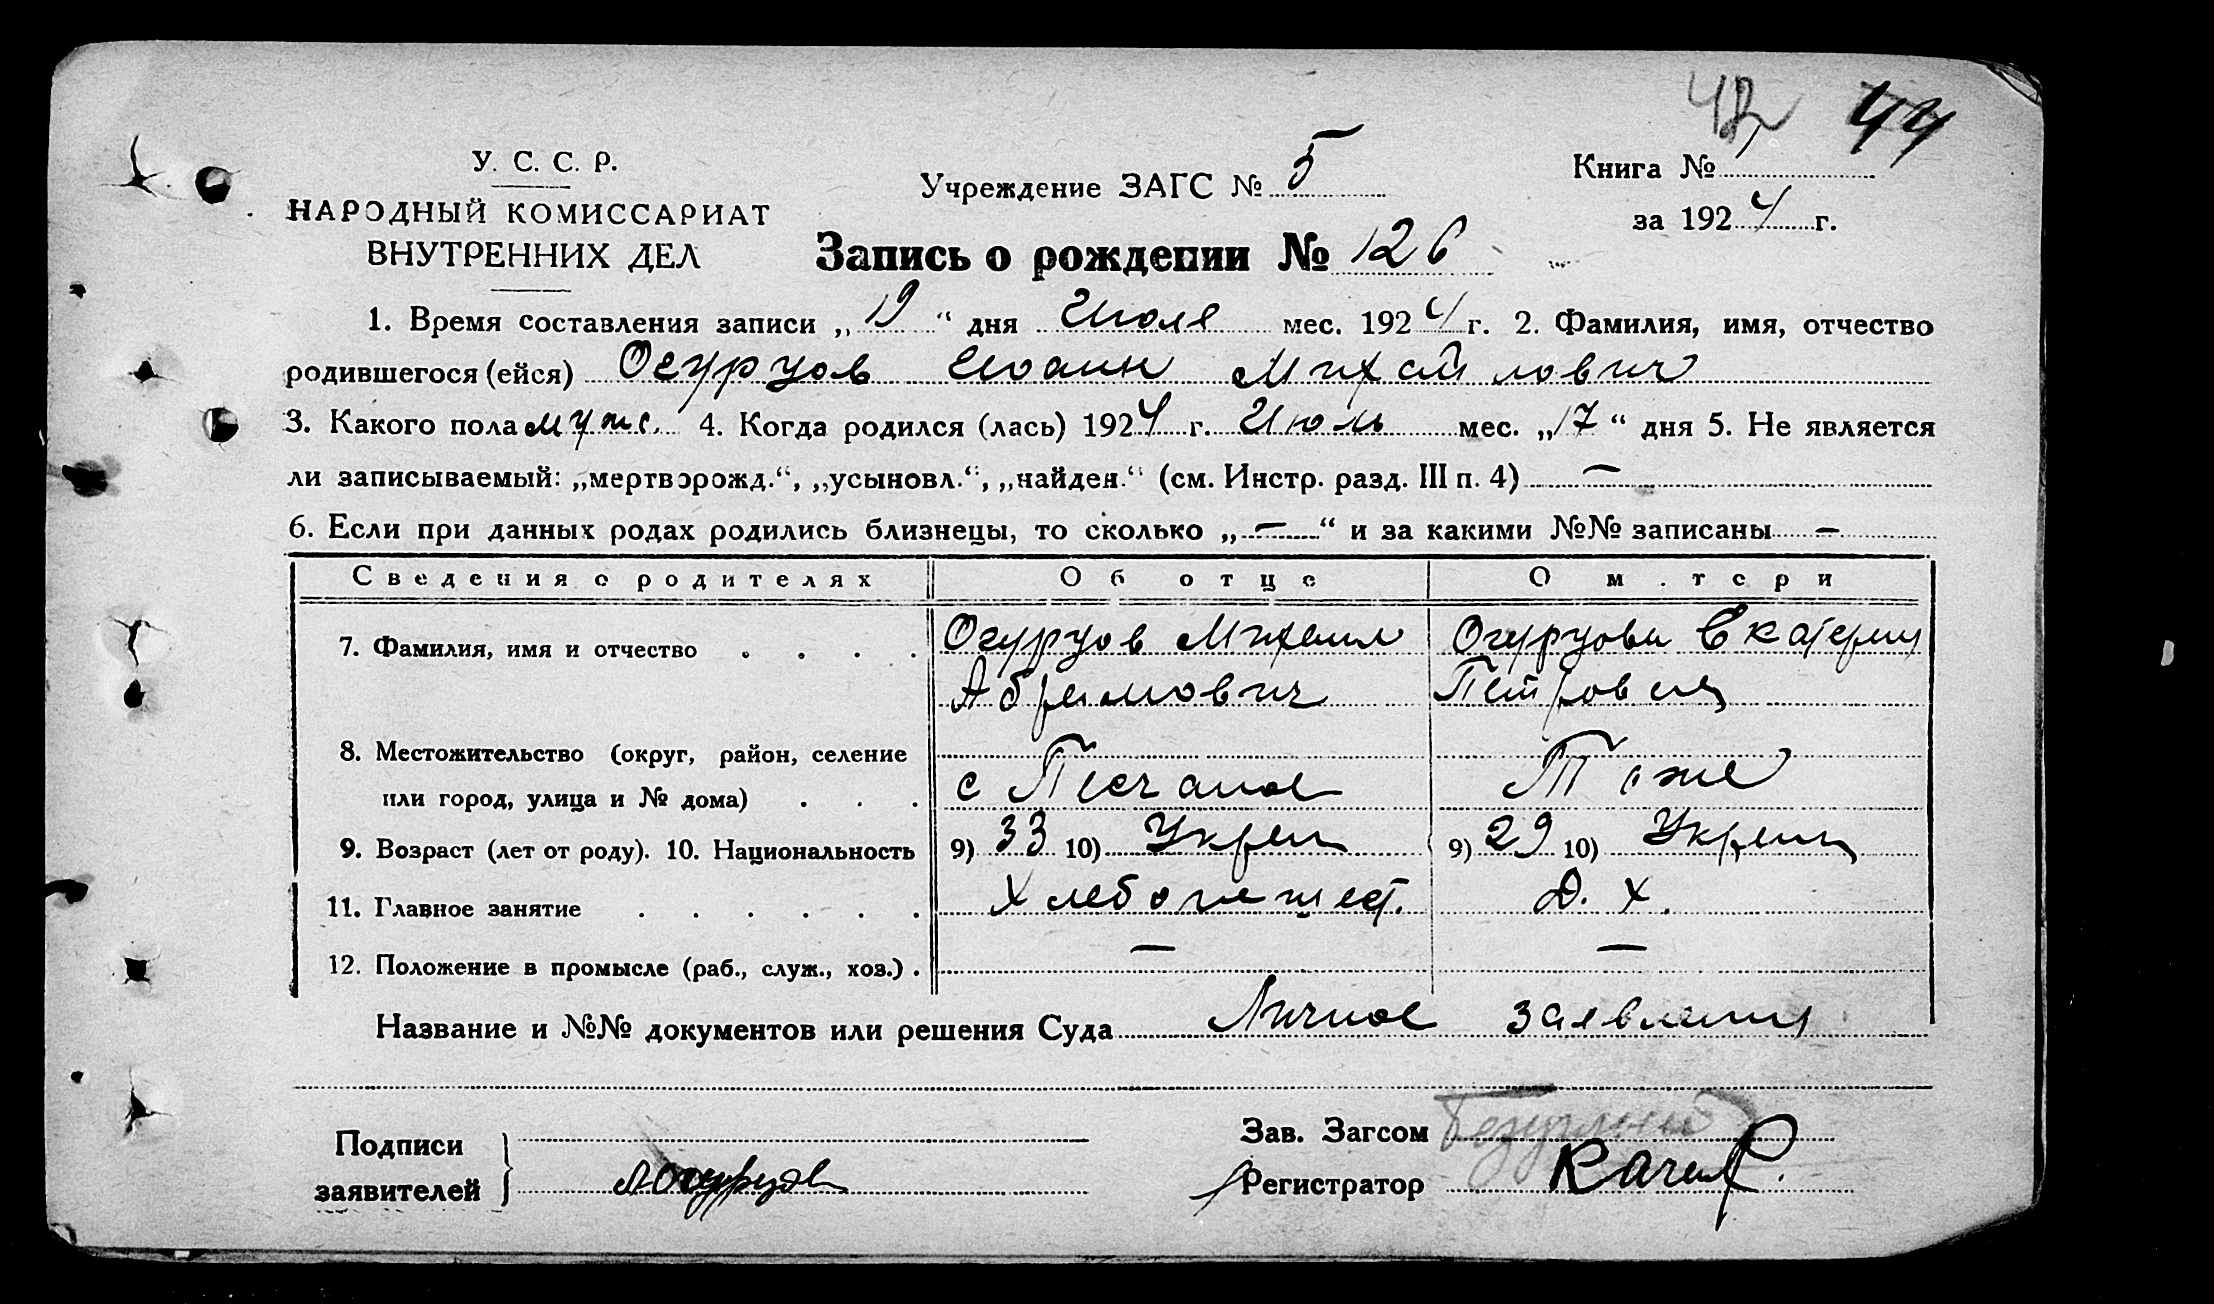 42 44
У. С. С. Р.
НАРОДНЫЙ КОМИССАРИАТ
ВНУТРЕННИХ ДЕЛ
Учреждение ЗАГС № 5
Книга № 1
за 1924 г.
Запись о рождении № 126
1. Время составления записи „ 19 “ дня Июля мес. 1924 г. 2. Фамилия, имя, отчество
родившегося (ейся) Огурцов Иоанн Михайлович
3. Какого пола муж. 4. Когда родился (лась) 1924 г. Июль мес. „17“ дня 5. Не является
ли записываемый: „мертворожд.“, „усыновл.“, „найден.“ (см. Инстр. разд. III п. 4) —
6. Если при данных родах родились близнецы, то сколько „—“ и за какими №№ записаны —
Сведения о родителях Об отце О м.тери
7. Фамилия, имя и отчество . . . . Огурцов Михаил Огурцова Екатерина
Абрамович Петровна
8. Местожительство (округ, район, селение
или город, улица и № дома) . . . с Песчаное Тоже
9. Возраст (лет от роду). 10. Национальность 9) 33 10) Украин 9) 29 10) Украин
11. Главное занятие . . . . . . Хлебопашест. Д. Х.
12. Положение в промысле (раб., служ., хоз.) . — —
Название и №№ документов или решения Суда Личное заявление
Подписи
заявителей } Огурцов
Зав. Загсом
Регистратор